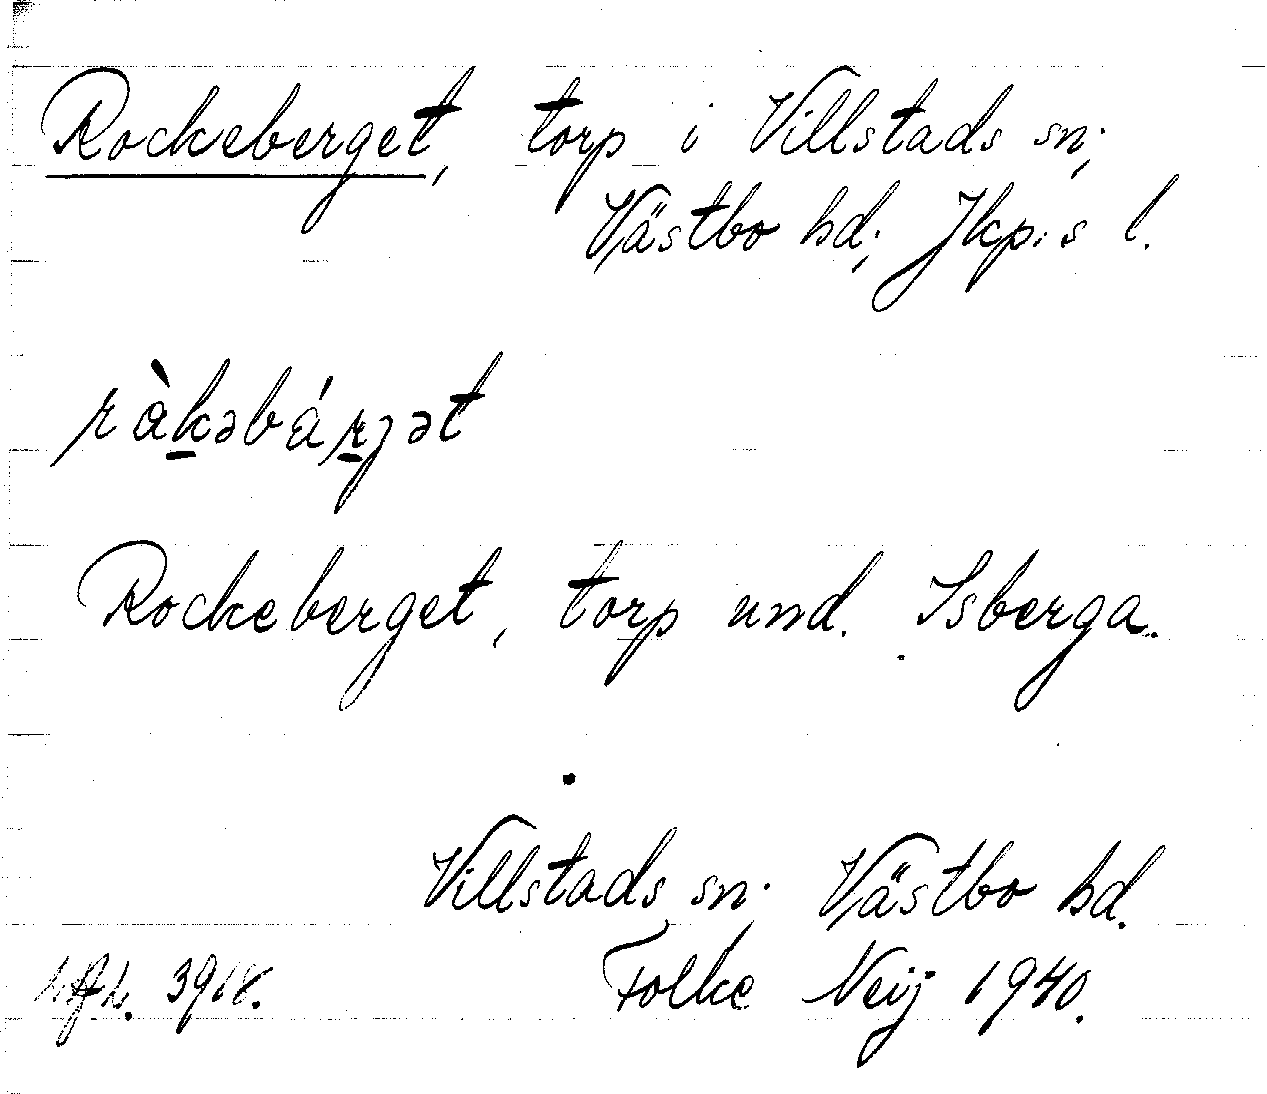 Rockeberget, torp i Villstads sn;
Västbo hd; Jkp:s l.
ràkəbárʒət
Rockeberget, torp und. Isberga.
Villstads sn; Västbo hd.
3918. Folke Neij 1940.